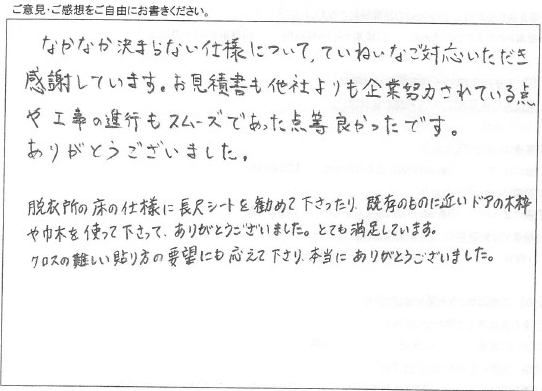 ご意見・ご感想をご自由にお書きください。
なかなか決まらない仕様について、ていねいなご対応いただき
感謝しています。お見積書も他社よりも企業努力されている点
や工事の進行もスムーズであった点等良かったです。
ありがとうございました。
脱衣所の床の仕様に長尺シートを勧めて下さったり、既存のものに近いドアの木枠
や巾木を使って下さって、ありがとうございました。とても満足しています。
クロスの難しい貼り方の要望にも応えて下さり、本当にありがとうございました。